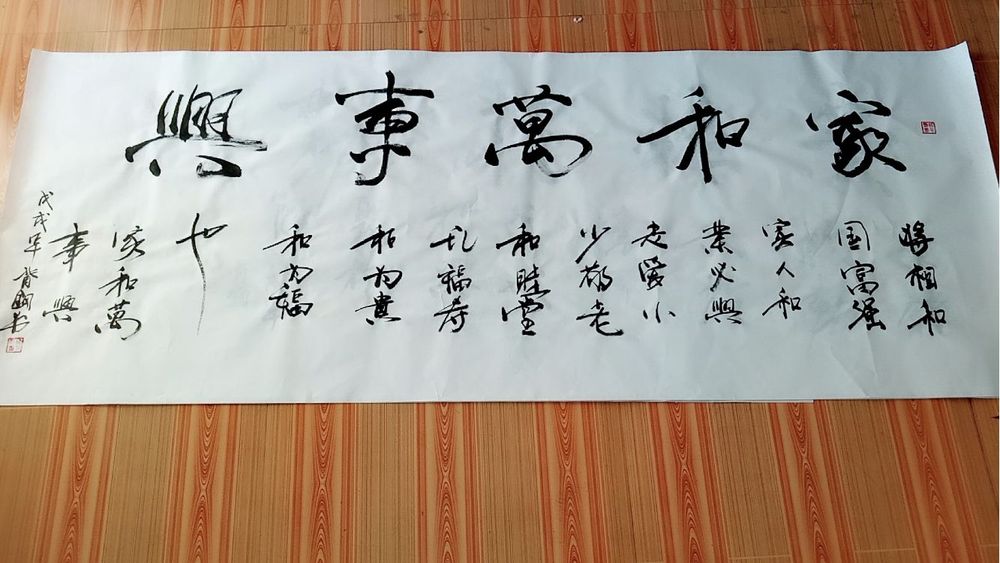 家和萬事興
将相和
国富强
家人和
業必興
老爱小
少敬老
和睦堂
福寿
和为貴
和为福
也
家和萬
事興
戊戌年 國书